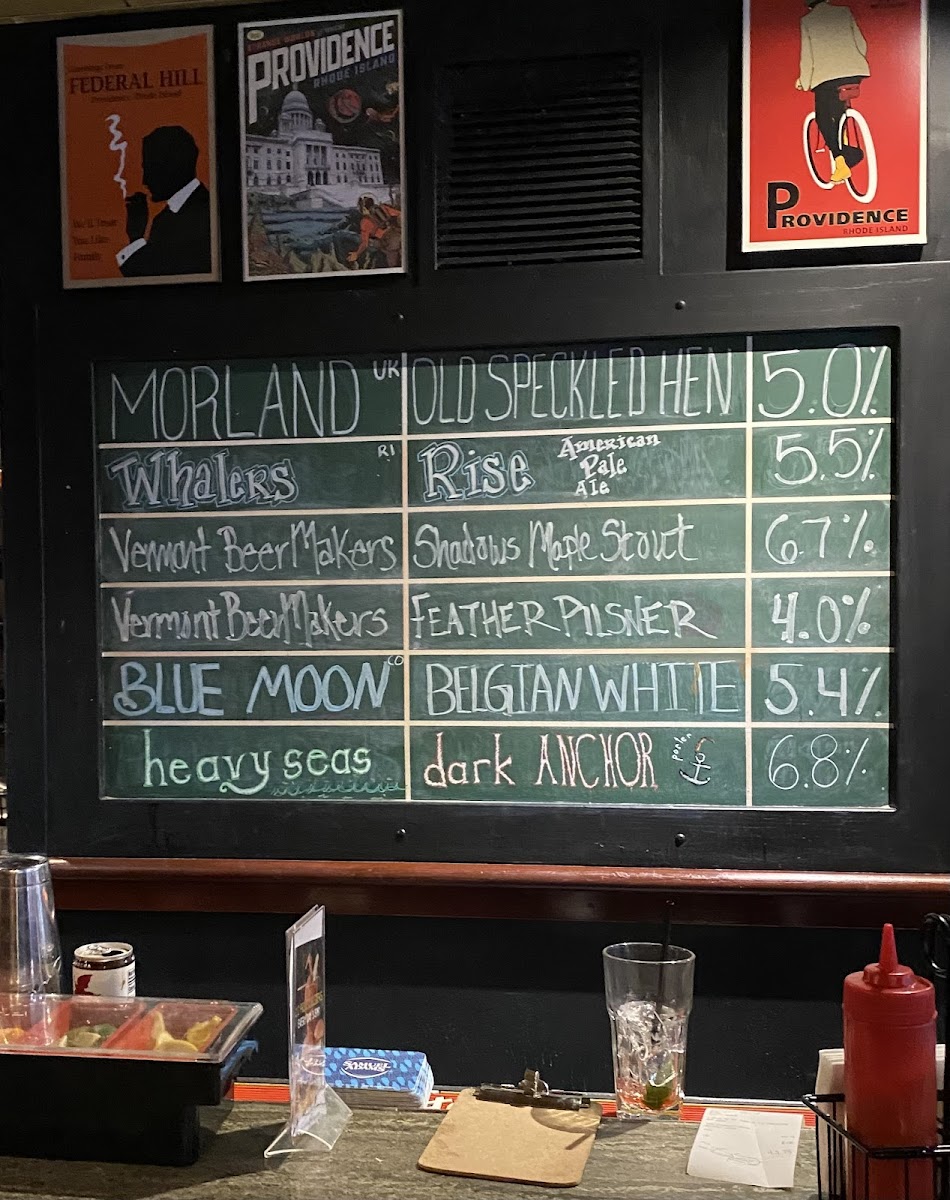 Greetings From
FEDERAL HILL
Providence, Rhode Island
We'll Treat
You Like
Family
STRANGE WORLDS
PROVIDENCE
RHODE ISLAND
PROVIDENCE
RHODE ISLAND
MORLAND UK OLD SPECKLED HEN 5.0%
Whalers RI Rise American Pale Ale 5.5%
Vermont Beer Makers Shadows Maple Stout 6.7%
Vermont Beer Makers FEATHER PILSNER 4.0%
BLUE MOON CO BELGIAN WHITE 5.4%
heavy seas dark ANCHOR porter 6.8%